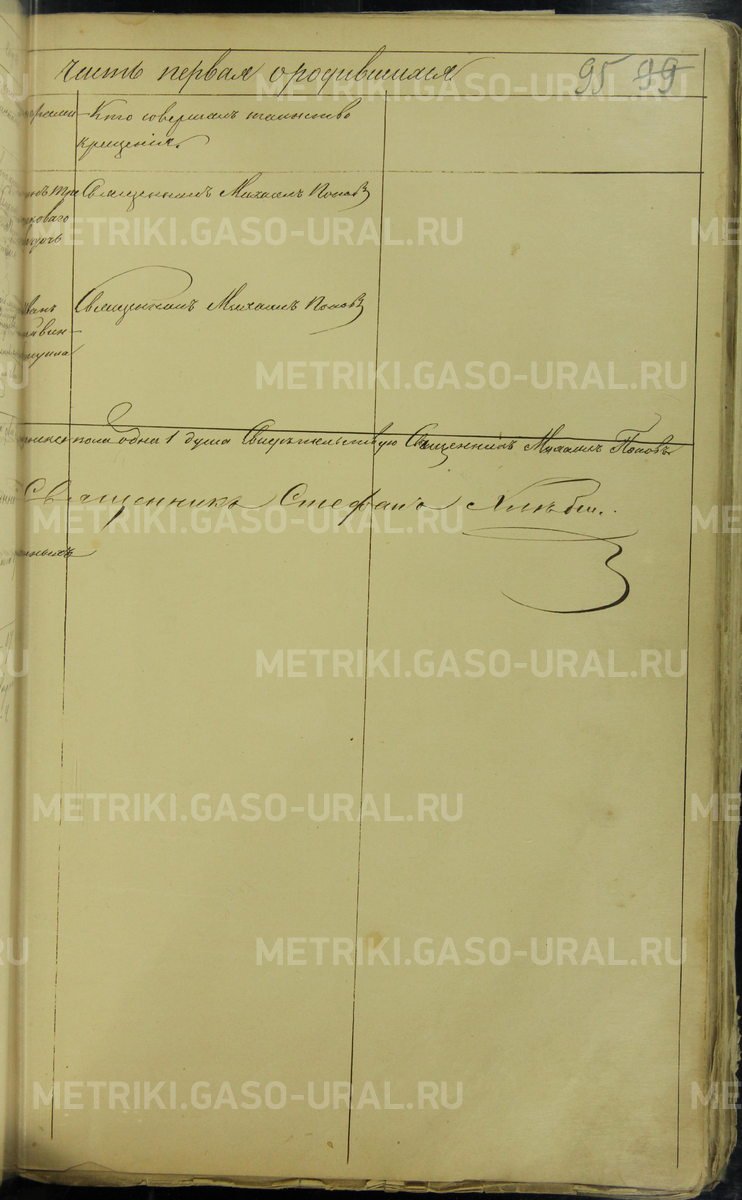 часть первая о родившихся 95 99
Кто совершалъ таинство
крещенія.
Священникъ Михаилъ Поповъ
коваго
Священникъ Михаилъ Поповъ
пола одна 1 душа Свидѣтельствую Священникъ Михаилъ Поповъ
Священникъ Стефанъ
METRIKI.GASO-URAL.RU
METRIKI.GASO-URAL.RU
METRIKI.GASO-URAL.RU
METRIKI.GASO-URAL.RU
METRIKI.GASO-URAL.RU
METRIKI.GASO-URAL.RU
METRIKI.GASO-URAL.RU
METRIKI.GASO-URAL.RU